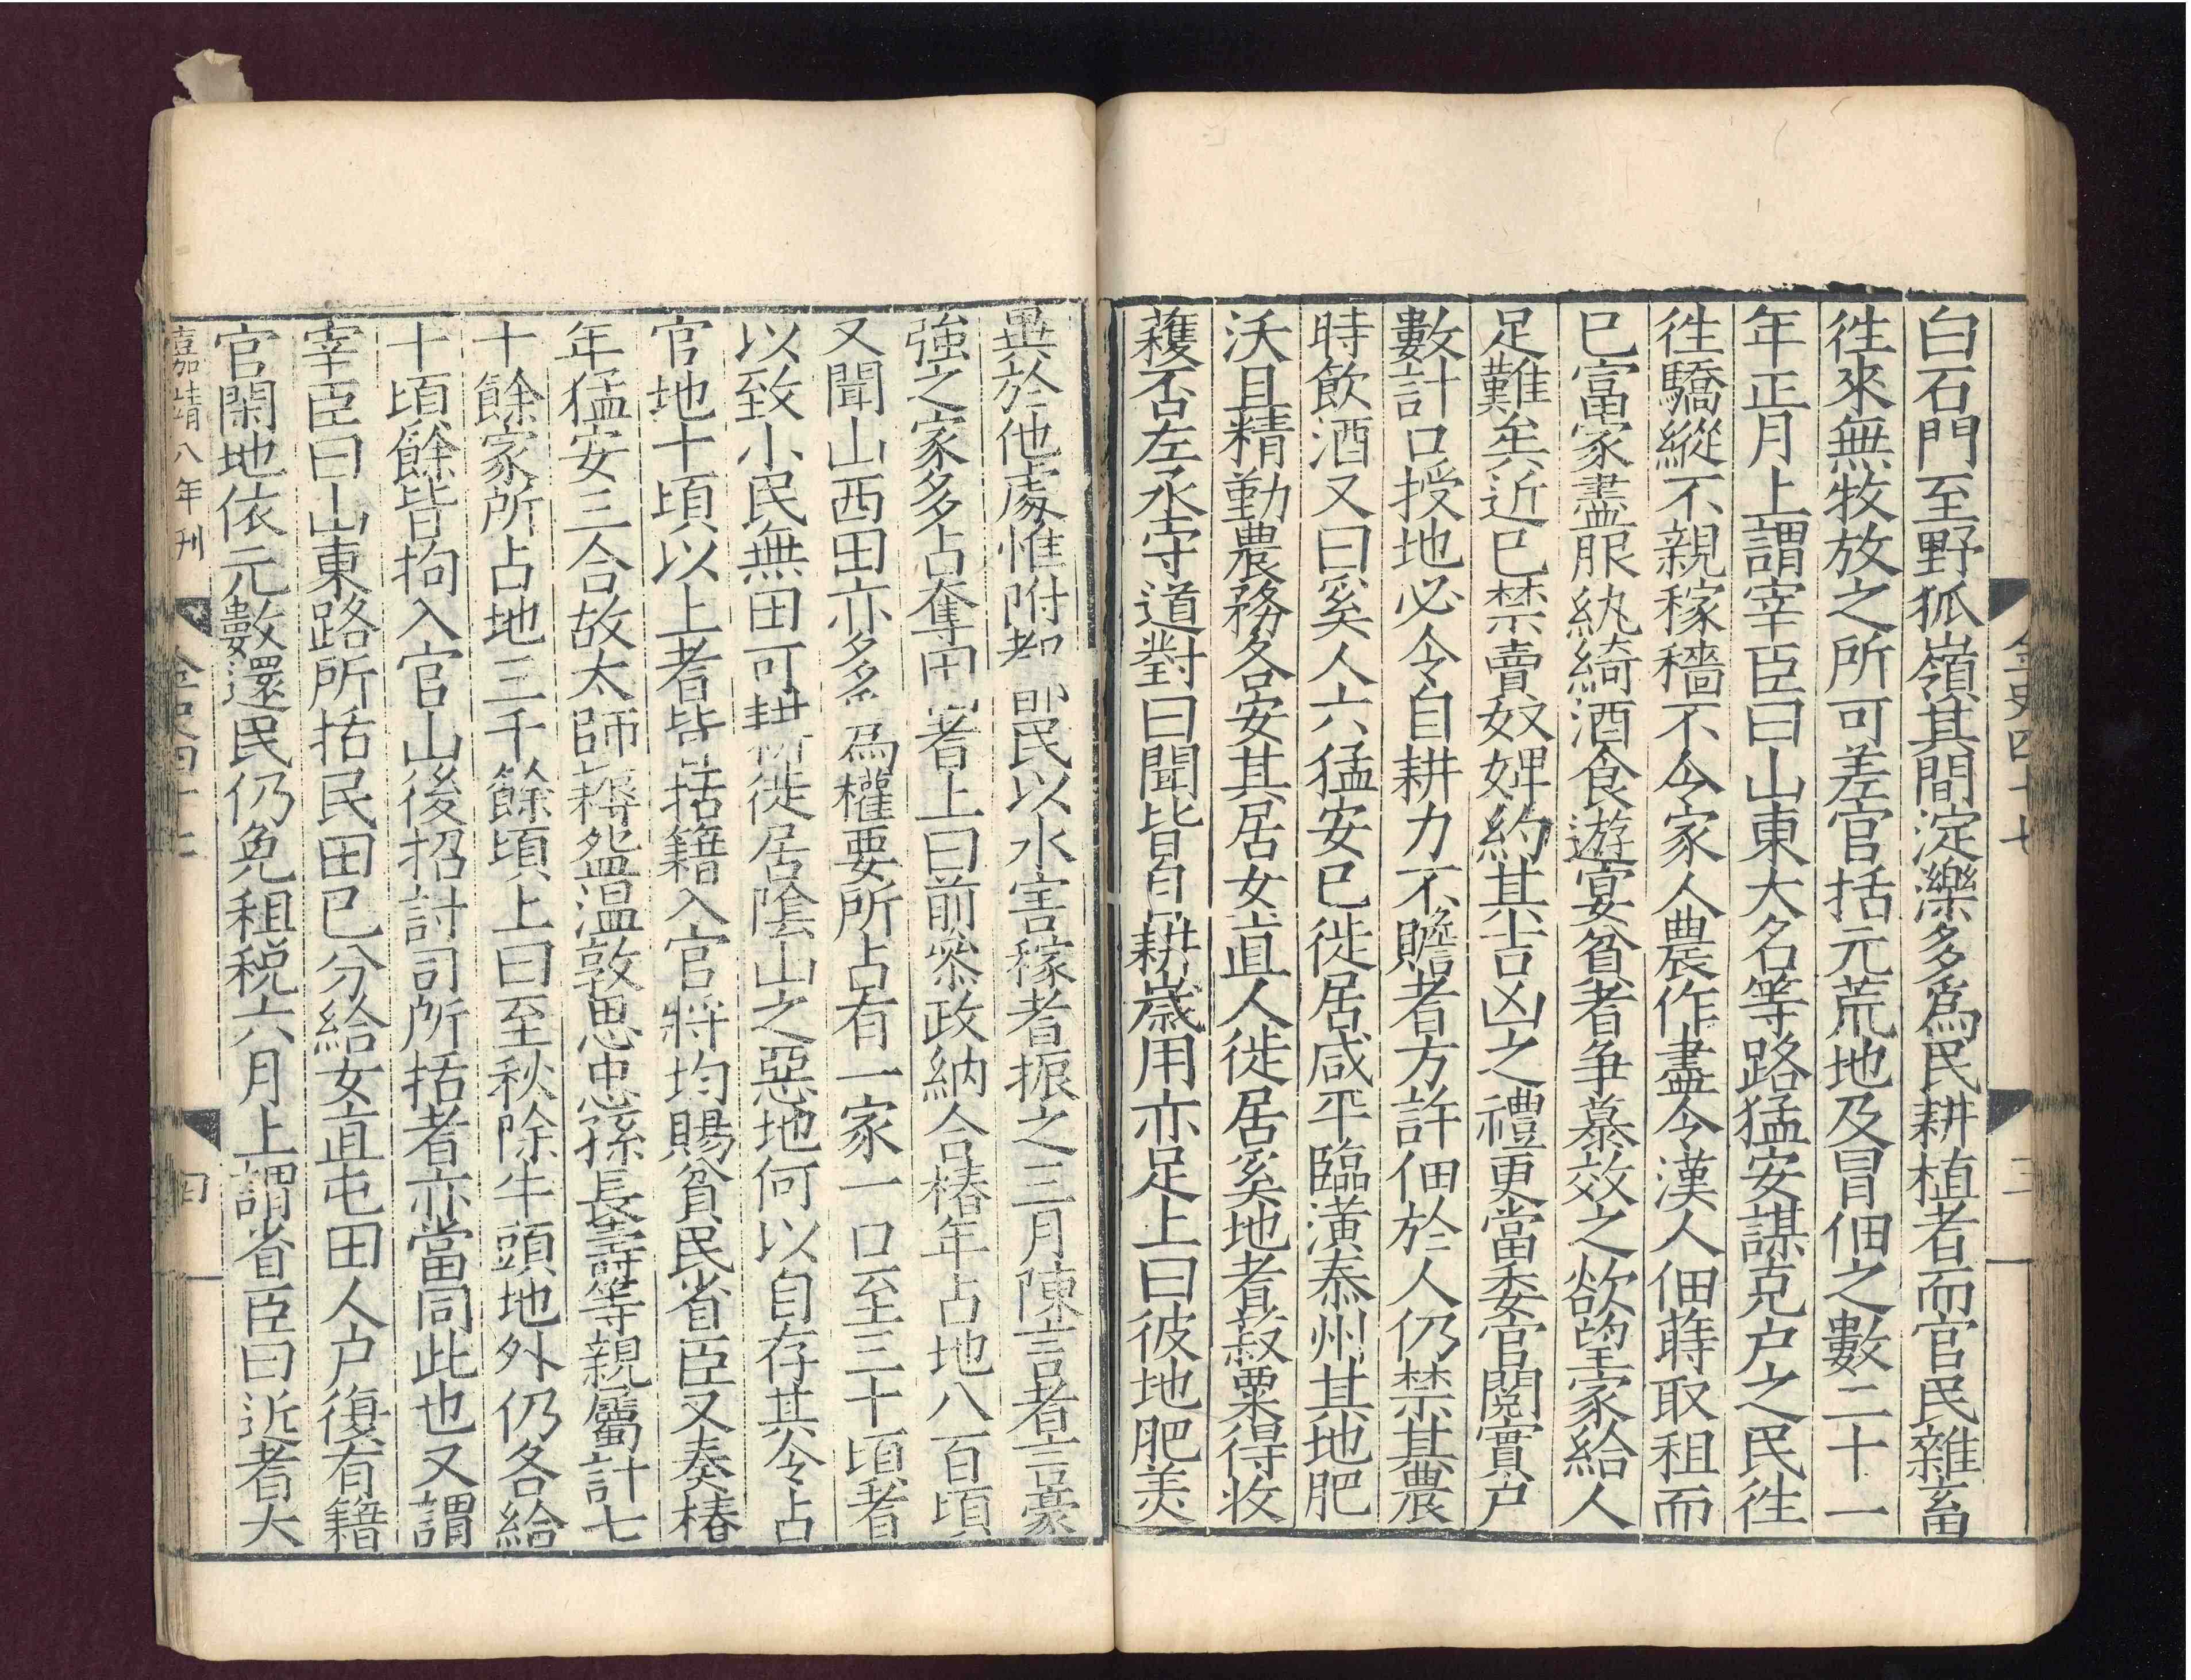 白石門至野狐嶺其間淀濼多爲民耕植者而官民雜畜
徃來無牧放之所可差官括元荒地及冒佃之數二十一
年正月上謂宰臣曰山東大名等路猛安謀克户之民徃
徃驕縱不親稼穡不令家人農作盡令漢人佃蒔取租而
已富家盡服紈綺酒食遊宴貧者争慕效之欲望家給人
足難矣近已禁賣奴婢約其吉凶之禮更當委官閲實户
數計口授地必令自耕力不贍者方許佃於人仍禁其農
時飲酒又曰奚人六猛安已徙居咸平臨潢泰州其地肥
沃且精勤農務各安其居女直人徙居奚地者菽粟得收
穫否左丞守道對曰聞皆自耕歲用亦足上曰彼地肥美
異於他處惟附都民以水害稼者振之三月陳言者言豪
強之家多占奪田者上曰前叅政納合椿年占地八百頃
又聞山西田亦多爲權要所占有一家一口至三十頃者
以致小民無田可耕徙居陰山之惡地何以自存其令占
官地十頃以上者皆括籍入官將均賜貧民省臣又奏椿
年猛安三合故太師耨盌溫敦思忠孫長壽等親屬計七
十餘家所占地三千餘頃上曰至秋除牛頭地外仍各給
十頃餘皆拘入官山後招討司所括者亦當同此也又謂
宰臣曰山東路所括民田已分給女直屯田人户復有籍
官閑地依元數還民仍免租税六月上謂省臣曰近者大
嘉靖八年刊
金史四十七
四